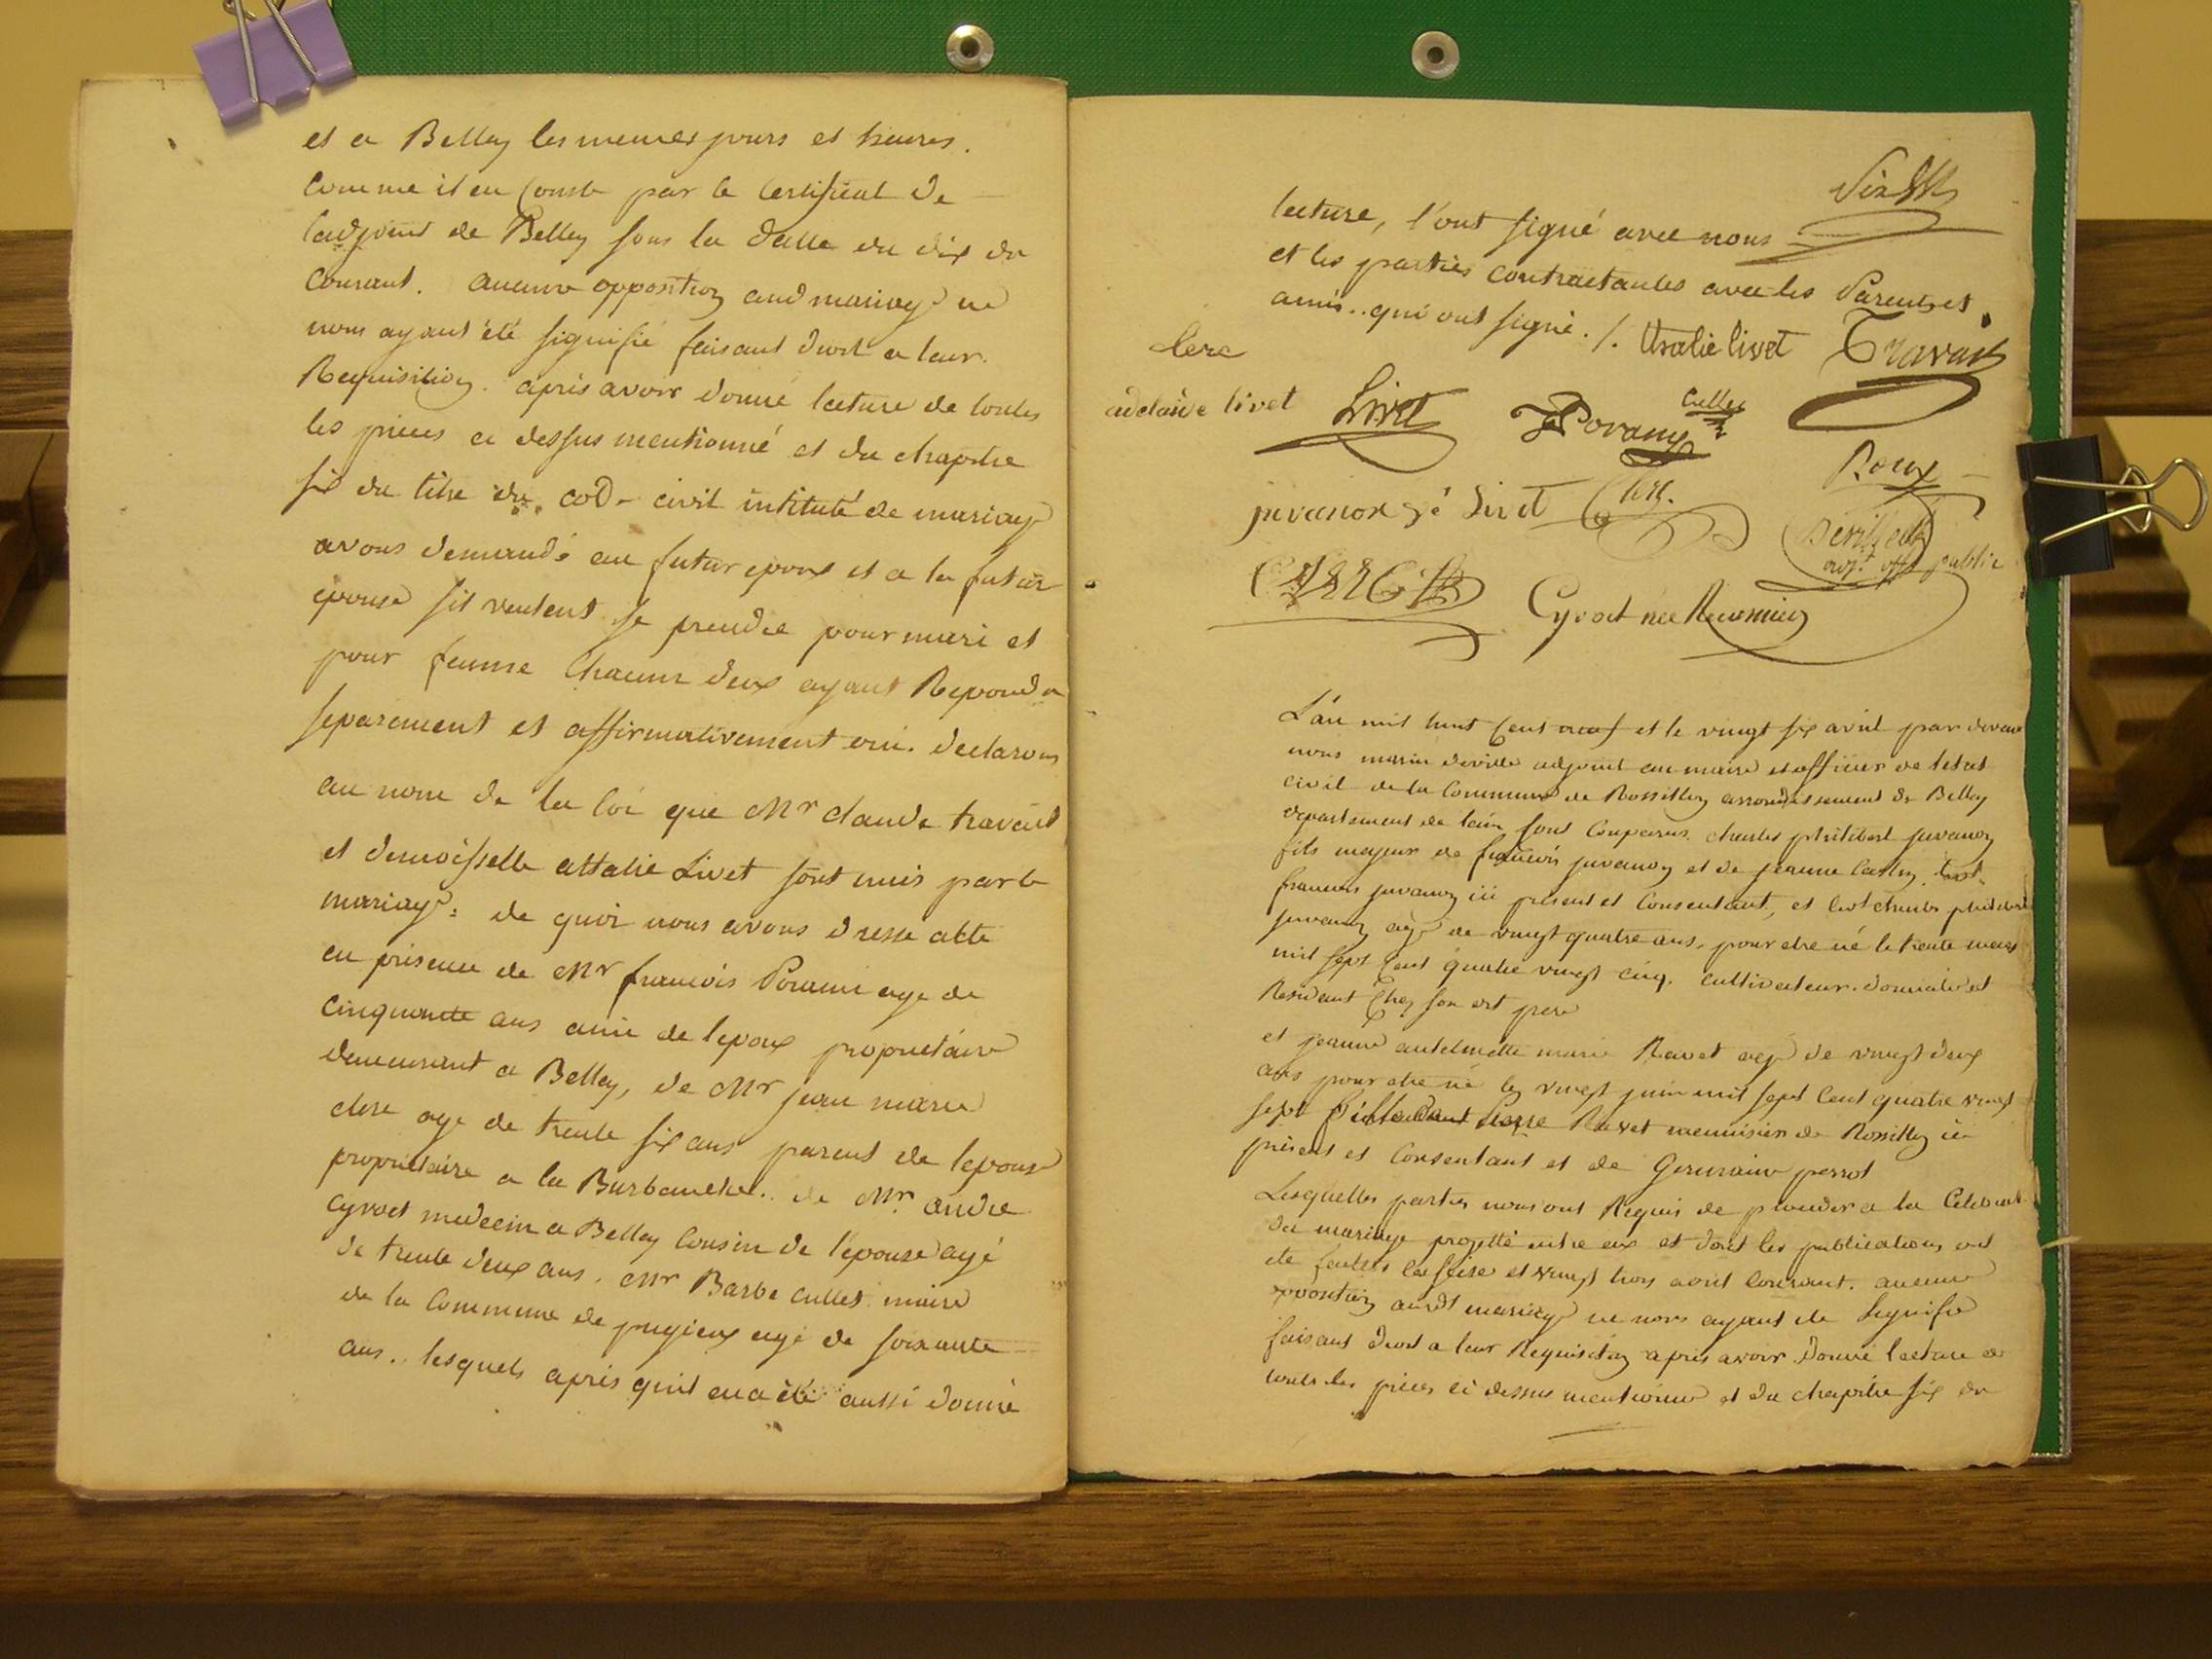 et a Belley les memes jours et heures.
Comme il en Conste par le Certificat de
l'adjoint de Belley sous la datte du dix du
Courant. aucune opposition aud mariage ne
nous ayant été signifié faisant droit a leur
Requisition. apris avoir donné lecture de toutes
les pieces ci dessus mentionné et du chapitre
six du titre du cod- civil intitulé de mariage
avons demandé au futur epoux et a la futur
epouse sil veulent se prendre pour mari et
pour femme Chacun deux ayant Repondu
separement et affirmativement oui. declarons
au nom de la loi que Mr claude travail
et demoisselle attalie Livet sont unis par le
mariage: de quoi nous avons dresse akte
en presence de Mr francois Porami age de
cinquante ans ami de lepoux proprietaire
demeurant a Belley, de Mr jean marie
clerc age de trente six ans parent de lepouse
proprietaire a la Burbanche.. de Mr. andre
Cyvoct medecin a Belley Cousin de l'epouse agé
de trente deux ans. Mr Barbe Cullet maire
de la Commune de pugieux agé de soixante
ans.. lesquels apris quil en a été aussi donné
lecture, l'ont signé avec nous
et les parties contractantes avec les Parents et
amis.. qui ont signé. /. Athalie livet Travail
clerc
adelaide livet Livet Poramy Cullet
Roux
juvanon né Livet Clerc.
adj. off public
Cyvoct née Recamier
L'an mil huit Cent neuf et le vingt six avril par devant
nous marin deville adjoint au maire et officier de letat
civil de la Commune de Rossillon arrondissement de Belley
departement de lain sont Comparus. charles philibert juvanon
fils majeur de francois juvanon et de jeanne
francois juvanon ici present et Consentant, et charles philibert
juvanon agé de vingt quatre ans. pour etre né le trente mars
mil sept Cent quatre vingt cinq. cultivateur. domicilié et
Residant Chez son pere
et jeanne antelmette marie Ravet agé de vingt deux
ans pour etre né le vingt juin mil sept Cent quatre vingt
sept Ravet menuisier de Rossillon ici
présent et Consentant et de Germaine perrot
Lesquelles parties nous ont Requis de proceder a la Celebrat
du mariage projetté entre eux et dont les publications ont
ete faites le seise et vingt trois avril Courant. aucune
opposition audt mariage ne nous ayant ete Signifié
faisant droit a leur Requisition apris avoir donné lecture de
touts les pieces ci dessus mentionné et du chapitre six du